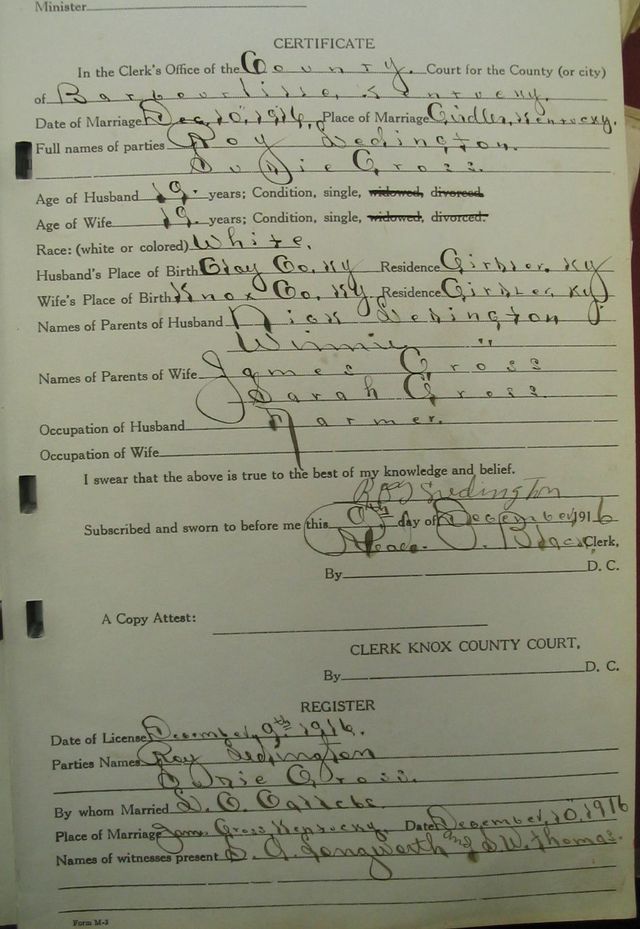 Minister
CERTIFICATE
In the Clerk's Office of the County. Court for the County (or city)
of Barbourville, Kentucky.
Date of Marriage Dec, 10, 1916, Place of Marriage Girdler, Kentucky.
Full names of parties Roy Sedington.
Susie Gross.
Age of Husband 19. years; Condition, single, widowed, divorced.
Age of Wife 19. years; Condition, single, widowed, divorced.
Race: (white or colored) White.
Husband's Place of Birth Clay Co, Ky Residence Girdler, Ky
Wife's Place of Birth Knox Co, Ky, Residence Girdler, Ky
Names of Parents of Husband Dick Sedington
Winnie "
Names of Parents of Wife James Gross
Sarah Gross.
Occupation of Husband Farmer.
Occupation of Wife
I swear that the above is true to the best of my knowledge and belief.
Roy Sedington
Subscribed and sworn to before me this day of December, 1916
Clerk,
By D. C.
A Copy Attest:
CLERK KNOX COUNTY COURT,
By D. C.
REGISTER
Date of License December, 9th, 1916.
Parties Names Roy Sedington
Susie Gross.
By whom Married
Place of Marriage Gross, Kentucky. Date December, 10, 1916
Names of witnesses present Longworth and W. Thomas.
Form M-3